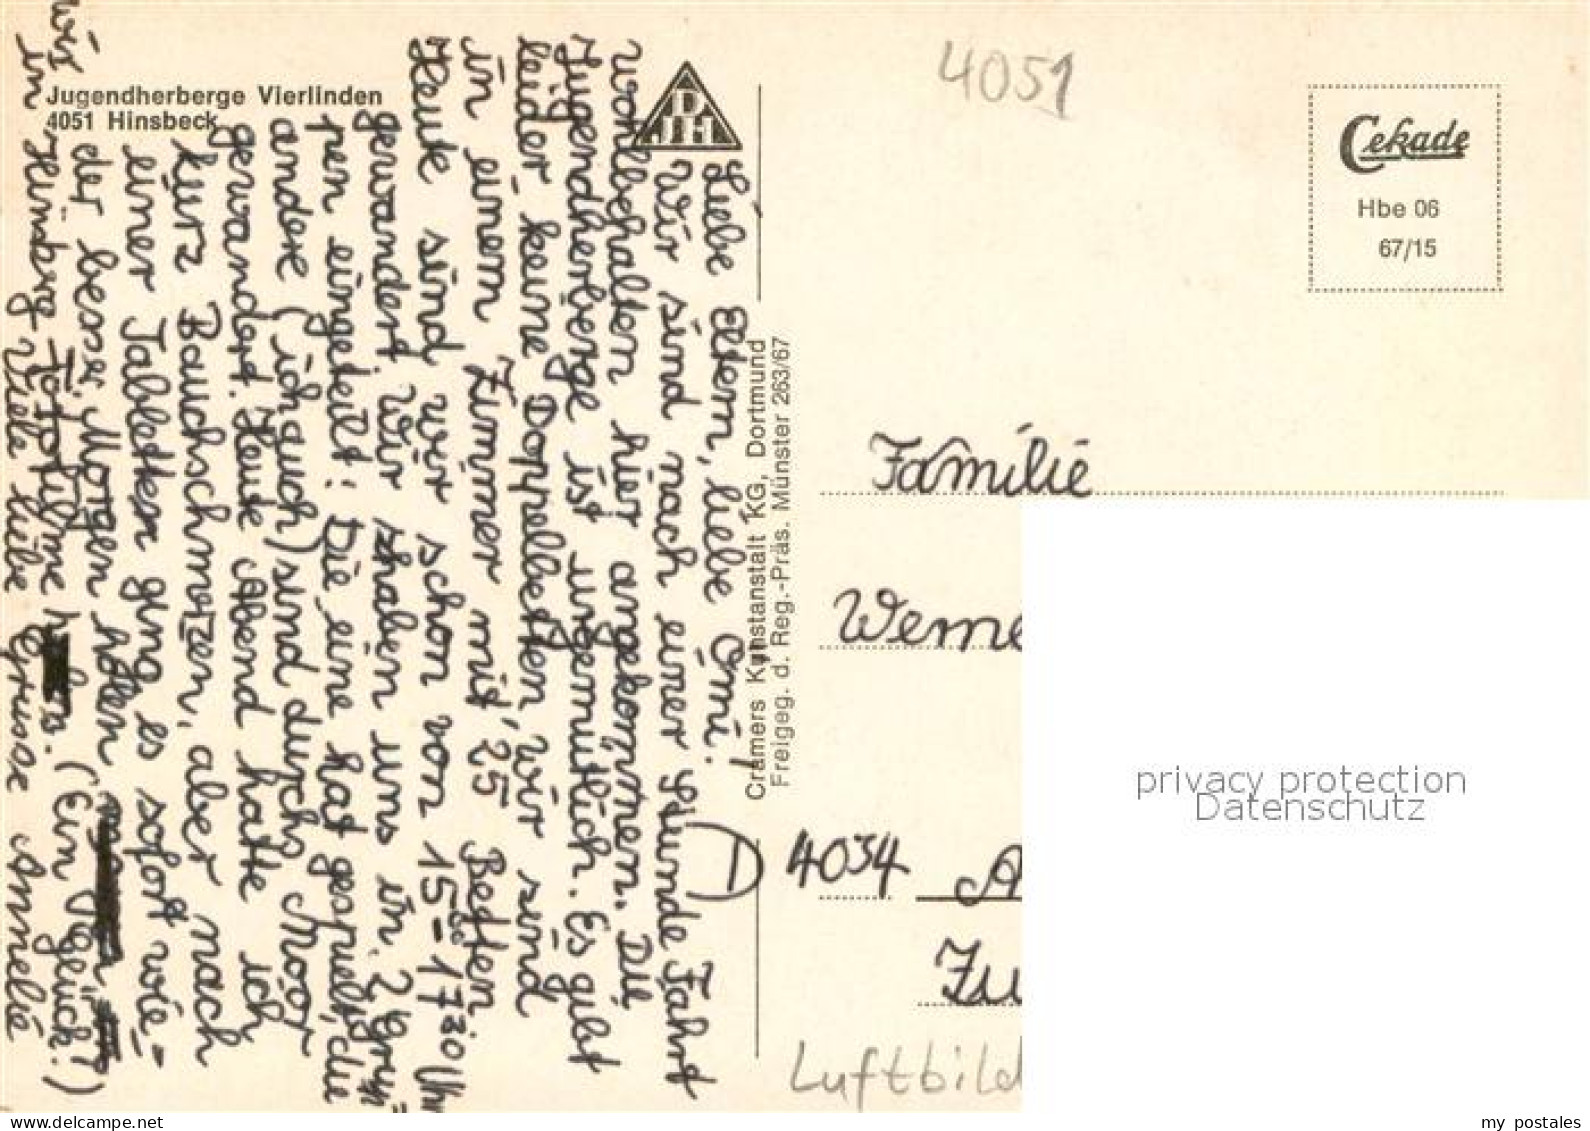 Jugendherberge Vierlinden
4051 Hinsbeck
DJH
Liebe Eltern, liebe Omi!
Wir sind nach einer Stunde Fahrt
wohlbehalten hier angekommen. Die
Jugendherberge ist urgemütlich. Es gibt
leider keine Doppelbetten, wir sind
in einem Zimmer mit 25 Betten.
Heute sind wir schon von 15-17³⁰ Uhr
gewandert. Wir haben uns in 2 Grup-
pen eingeteilt: Die eine hat gespielt, die
andere (ich auch) sind durchs Moor
gewandert. Heute Abend hatte ich
kurz Bauchschmerzen, aber nach
einer Tabletten ging es sofort wie-
der besser. Morgen holen
wir
in Hinsberg Viele liebe Grüsse Annelie
(Ein Unglück!)
Cramers Kunstanstalt KG, Dortmund
Freigeg. d. Reg.-Präs. Münster 263/67
4051
Cekade
Hbe 06
67/15
Familie
Werne
D 4034 A
Zu
Luftbild
privacy protection
Datenschutz
my postales